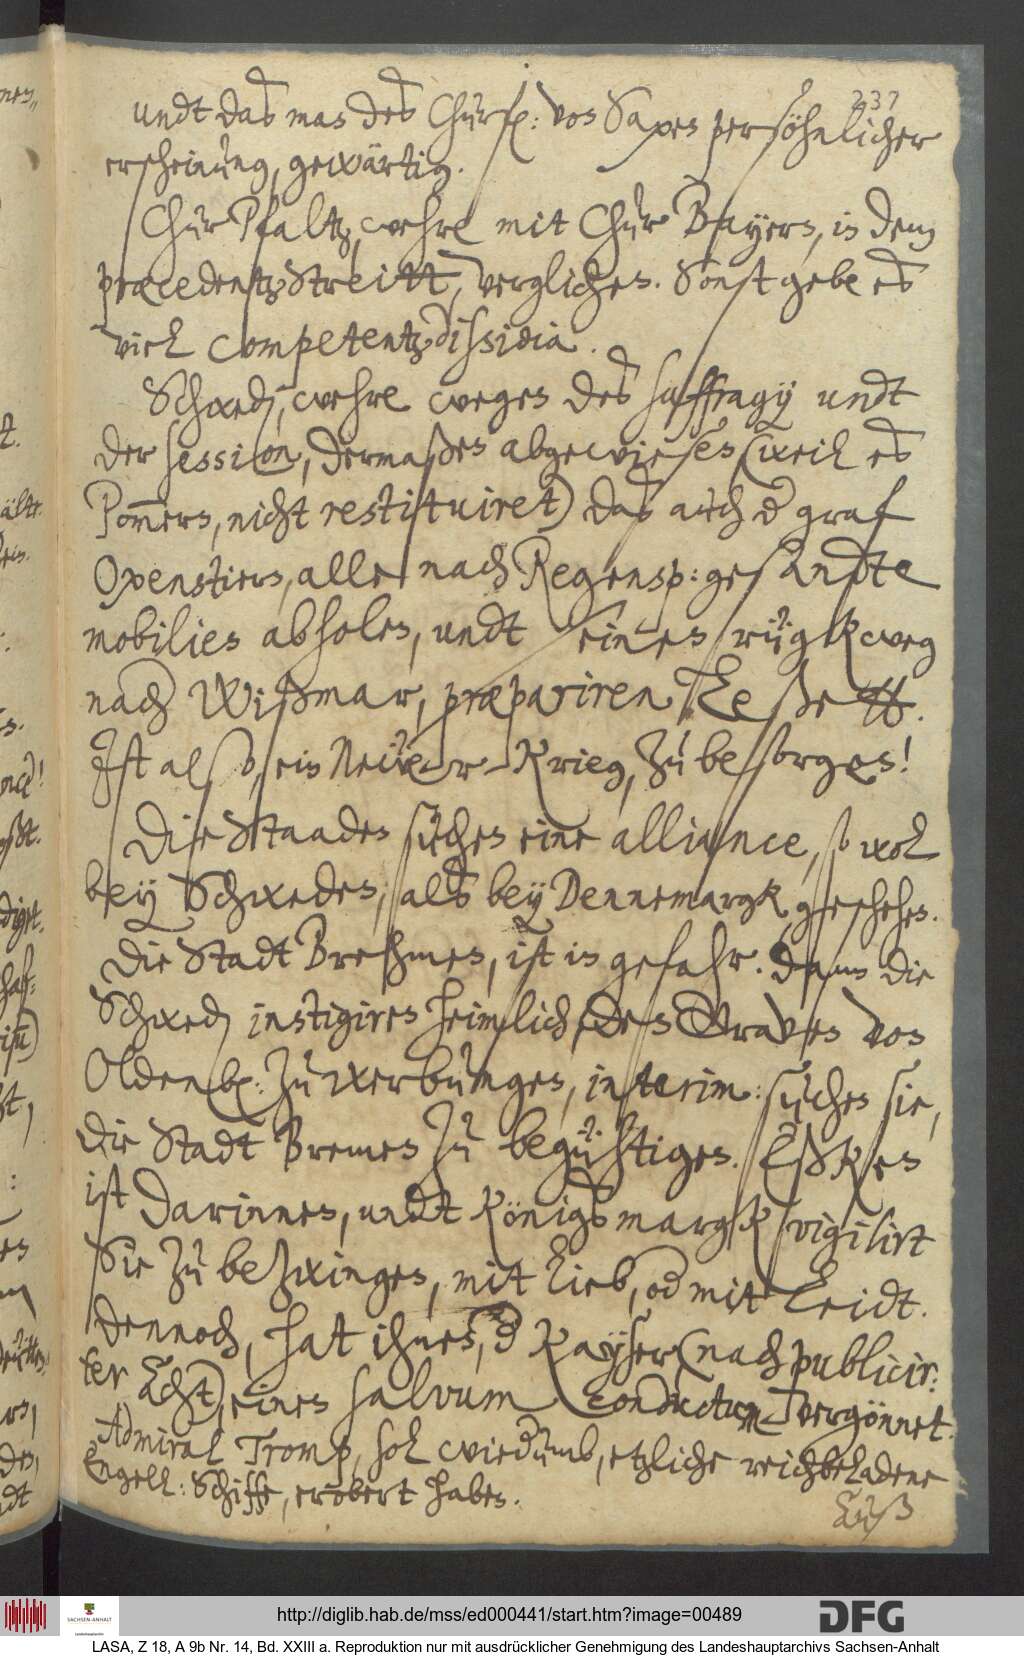 237
undt das man des Churf: von Saxen persöhnlicher
erscheinung, gewärtig.
Chur Pfaltz, wehre mit Chur Bayern, in dem
præcedentzStreitt, verglichen. Sonst gebe es
viel competentzdissidia.
Schweden, wehre wegen des suffragij undt
der session, dermaßen abgewiesen (weil es
Pom̅ern, nicht restituiret) das auch der graf
Oxenstiern, alle nach Regensp: gesandte
mobilien abholen, undt seinen rügkweg
nach Wißmar, præpariren ließe
Ist also, ein Neẅer Krieg, zu besorgen!
Die Staaden suchen eine alliance, so wol
bey Schweden, als bey Dennemargk, geschehen.
Die Stadt Brehmen, ist in gefahr. Dann die
Schweden instigiren heimlich, den Graven von
Oldenb: zu
interim: suchen sie,
die Stadt Bremen zu begünstigen. Eßken
ist darinnen, undt Königsmargk vigilirt
Sie zu bezwingen, mit lieb, oder mit Leidt.
Dennoch, hat ihnen, der Kayser (nach publicir:
ter Acht) einen salvum conductum vergönnet.
Admiral Tromp, sol wiederumb, etzliche reichbeladene
Engell: Schiffe, erobert haben.
Auß
http://diglib.hab.de/mss/ed000441/start.htm?image=00489
SACHSEN-ANHALT
DFG
LASA, Z 18, A 9b Nr. 14, Bd. XXIII a. Reproduktion nur mit ausdrücklicher Genehmigung des Landeshauptarchivs Sachsen-Anhalt